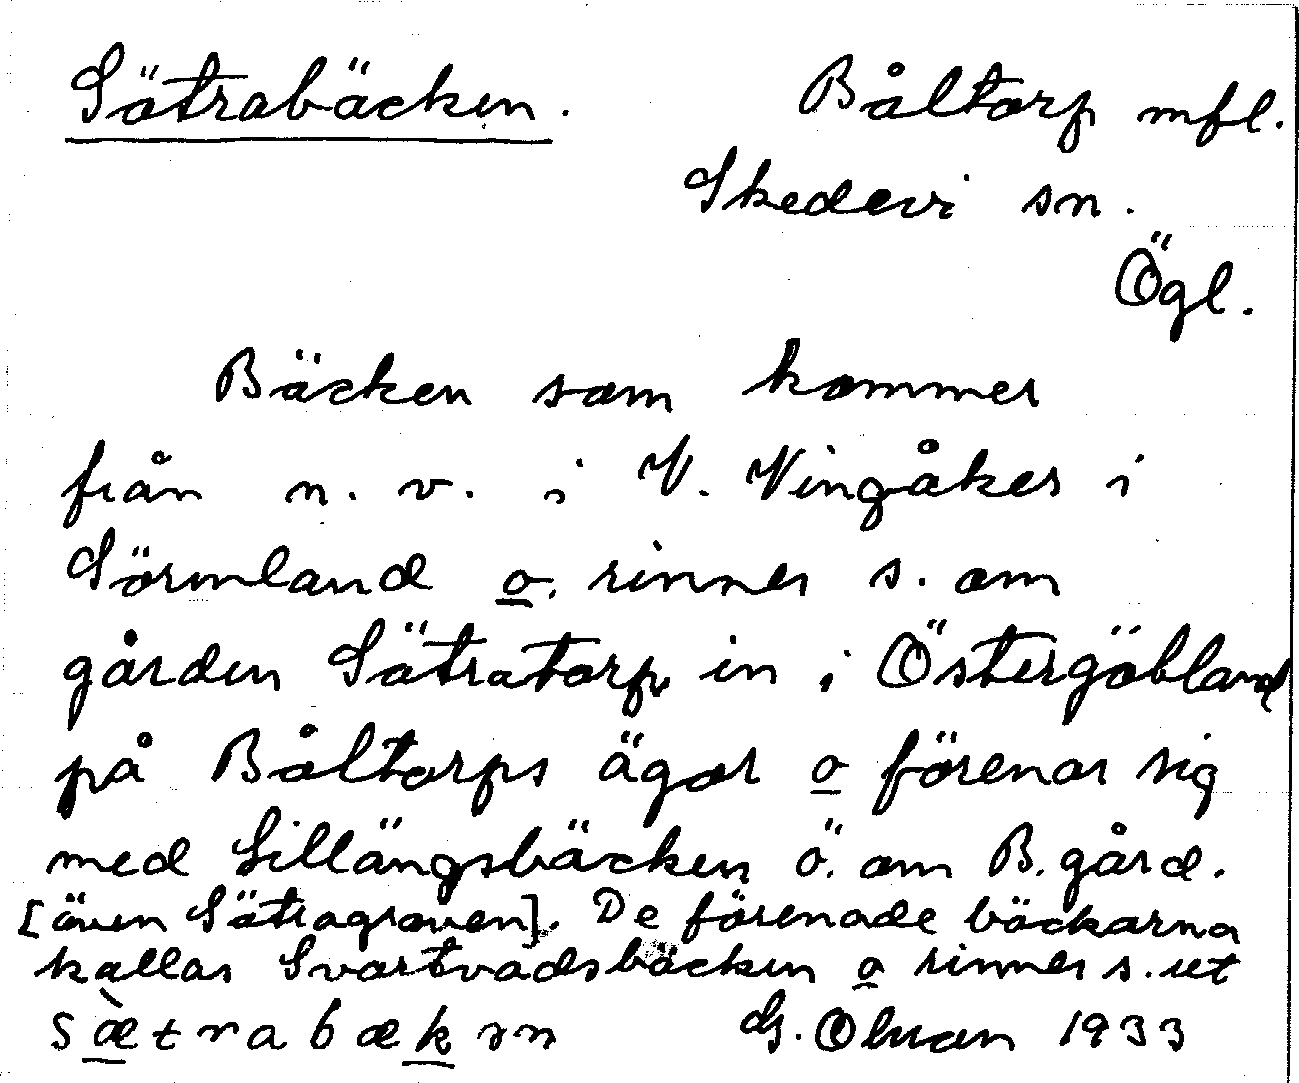 Sätrabäcken.
Båltorp mfl.
Skedevi sn.
Ögl.
Bäcken som kommer
från n. v. i V. Vingåker i
Sörmland o. rinner s. om
gården Sätratorp in i Östergötland
på Båltorps ägor o förenar sig
med Lillängsbäcken ö. om B. gård.
[även Sätragraven]. De förenade bäckarna
kallas Svartvadsbäcken o rinner s. ut
sæ̀trabækən G. Olman 1933